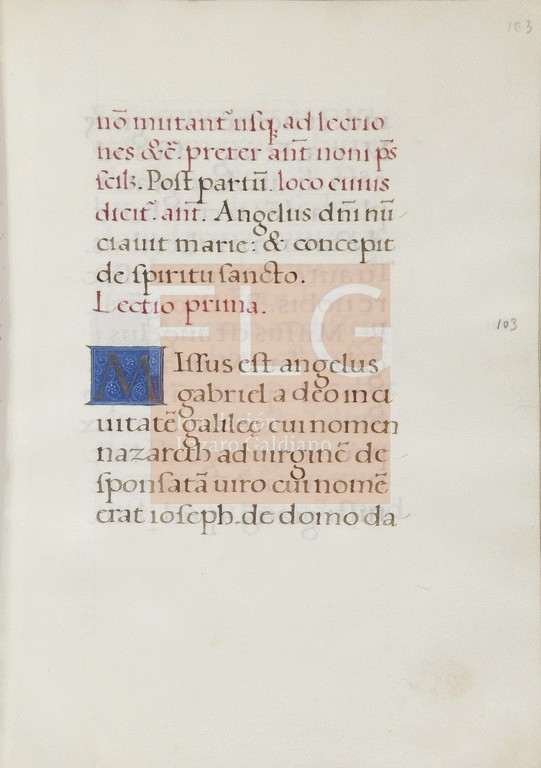 103
nō mutant᷑ usq; ad lectio
nes &c̄. preter añt noni p̄s
scił. Post partū. loco cuius
dicit᷑. añt. Angelus dñi nū
ciauit marie: & concepit
de spiritu sancto.
Lectio prima.
103
Missus est angelus
gabriel a deo in ci
uitatē galileę cui nomen
nazareth ad uirginē de
sponsatā uiro cui nomē
erat ioseph. de domo da
FLG
Fundación
Lázaro Galdiano